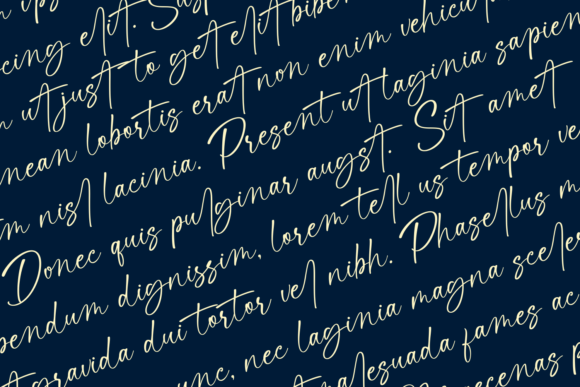 cing elit. Susp
ut just to get elit bibe
nean lobortis erat non enim vehicu
nisl lacinia. Present ut laginia sapien
Donec quis pulginar augst. Sit amet
bendum dignissim, lorem tell us tempor ve
gravida dui tortor vel nibh. Phasellus m
unc, nec laginia magna sceler
alesuada fames ac
ecenas p